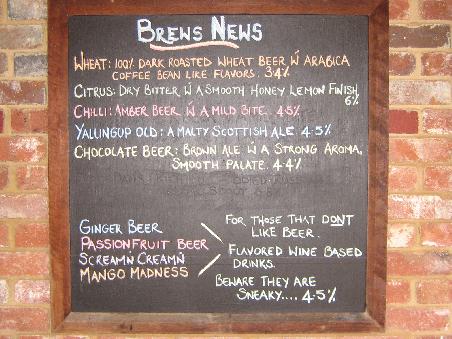 BREWS NEWS
WHEAT: 100% DARK ROASTED WHEAT BEER W ARABICA
COFFEE BEAN LIKE FLAVORS. 3.4%
CITRUS: DRY BITTER W A SMOOTH HONEY LEMON FINISH
6%
CHILLI: AMBER BEER W A MILD BITE. 4.5%
YALLINGUP OLD: A MALTY SCOTTISH ALE 4.5%
CHOCOLATE BEER: BROWN ALE W A STRONG AROMA,
SMOOTH PALATE. 4.4%
GINGER BEER
PASSIONFRUIT BEER
SCREAM'N CREAM'N
MANGO MADNESS
FOR THOSE THAT DON'T
LIKE BEER.
FLAVORED WINE BASED
DRINKS.
BEWARE THEY ARE
SNEAKY.... 4.5%